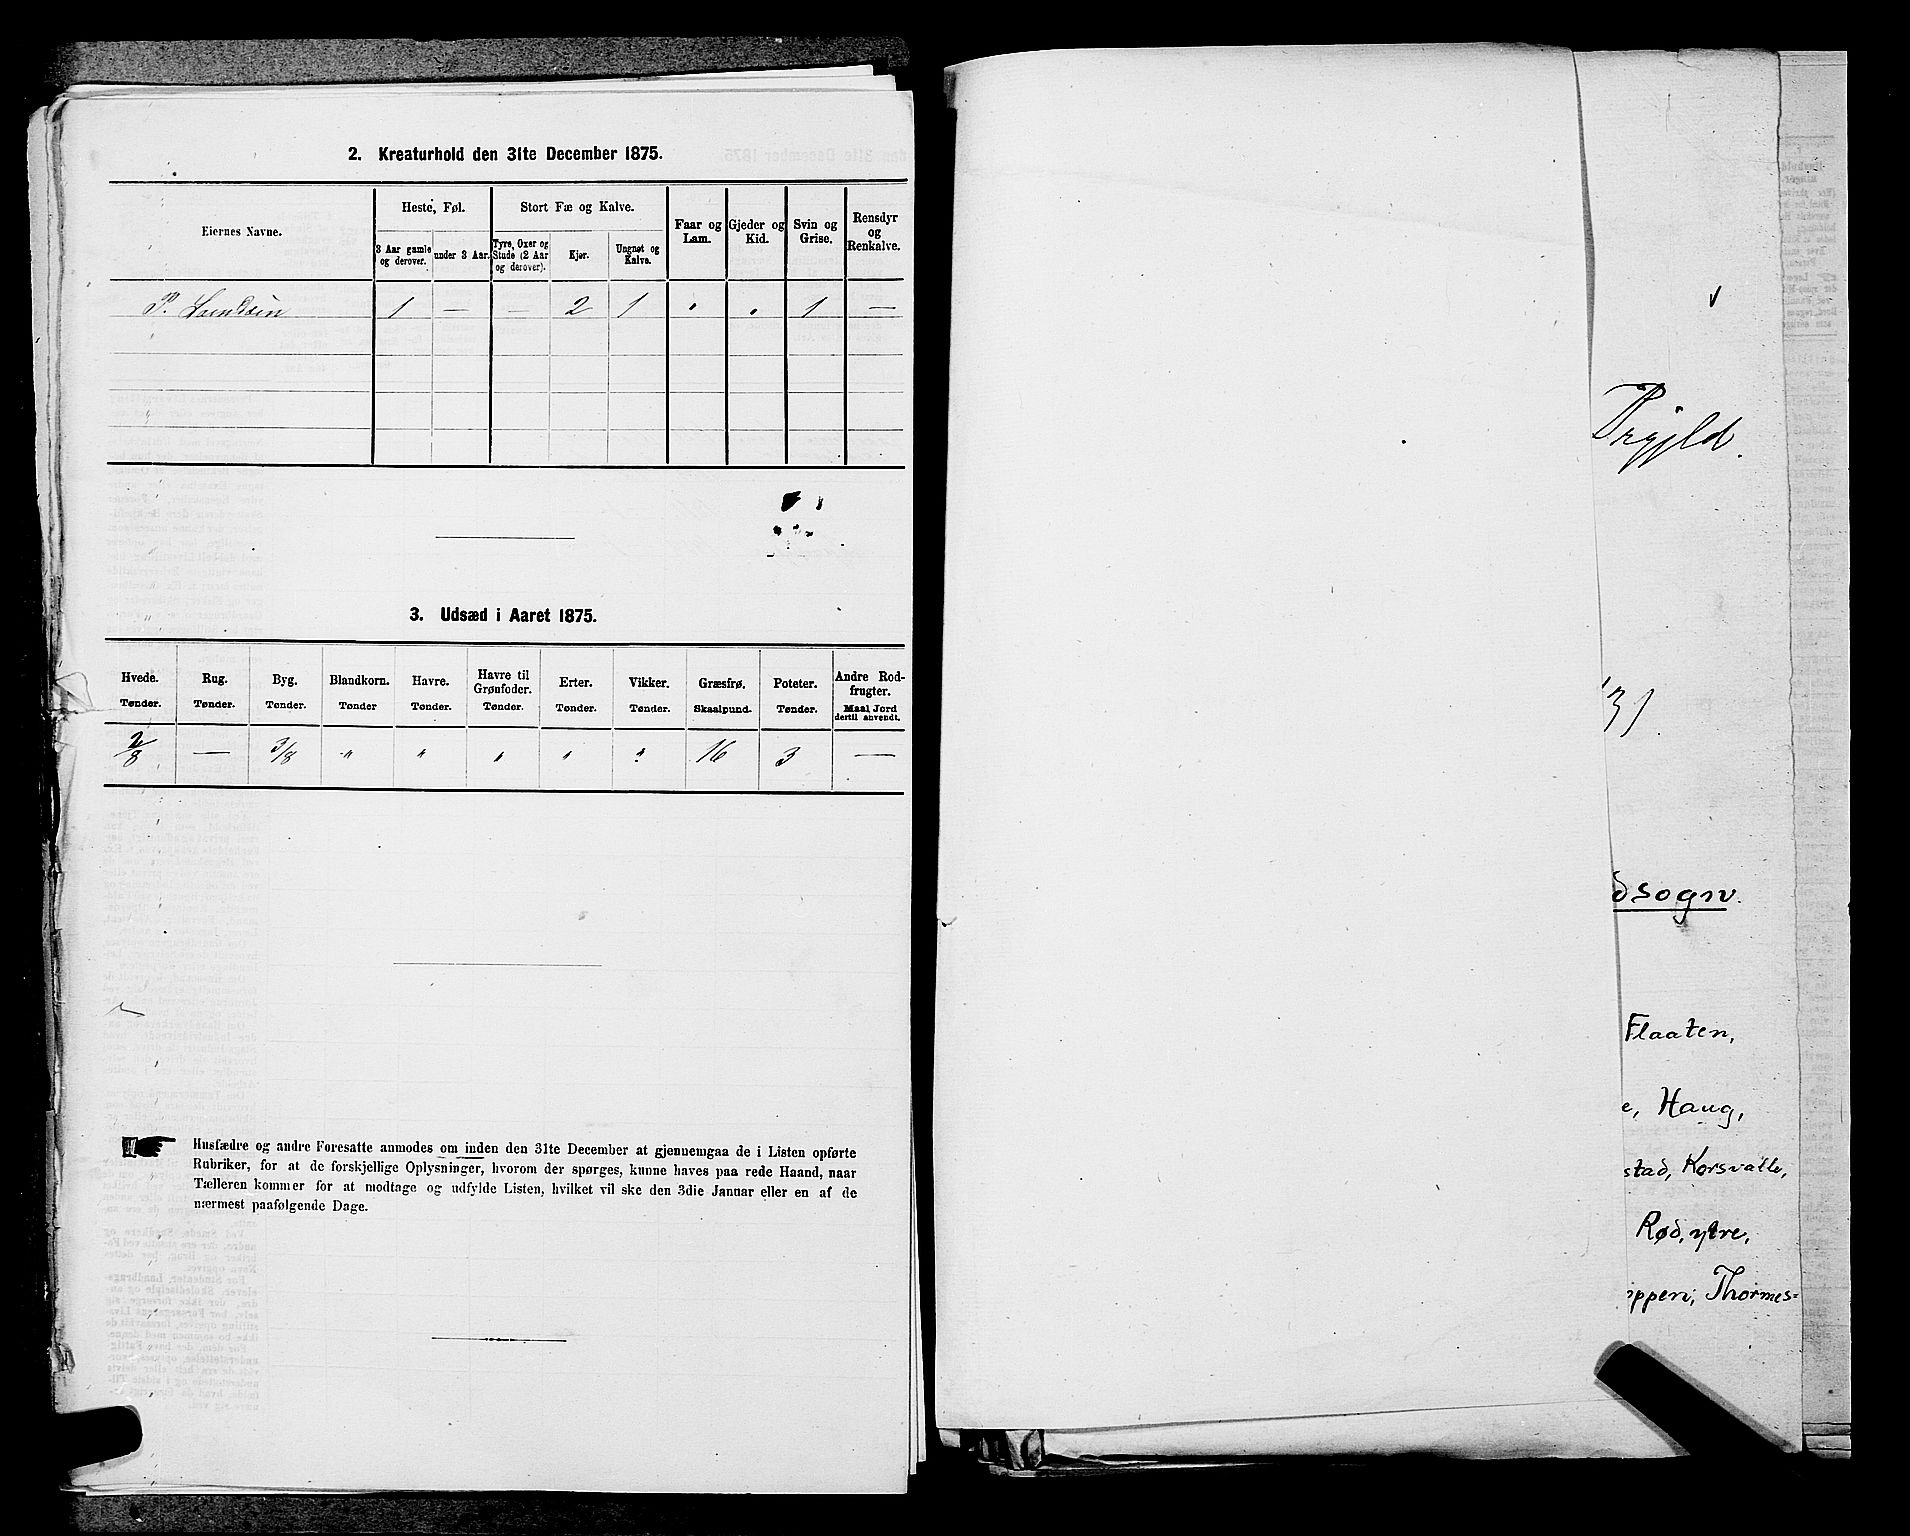 2. Kreaturhold den 31te December 1875.
Eiernes Navne.
Heste, Føl.
Stort Fæ og Kalve.
Faar og Lam.
Gjeder og Kid.
Svin og Grise.
Rensdyr og Renkalve.
3 Aar gamle og derover.
under 3 Aar.
Tyre, Oxer og Stude (2 Aar og derover).
Kjør.
Ungnøt og Kalve.
P. 1 — — 2 1 " " 1 —
3. Udsæd i Aaret 1875.
Hvede. Rug. Byg. Blandkorn. Havre. Havre til Grønfoder. Erter. Vikker. Græsfrø. Poteter. Andre Rodfrugter.
Tønder. Tønder. Tønder. Tønder Tønder. Tønder. Tønder. Tønder. Skaalpund. Tønder. Maal Jord dertil anvendt.
2/8 — 3/8 " " " " " 16 3 —
Husfædre og andre Foresatte anmodes om inden den 31te December at gjennemgaa de i Listen opførte
Rubriker, for at de forskjellige Oplysninger, hvorom der spørges, kunne haves paa rede Haand, naar
Tælleren kommer for at modtage og udfylde Listen, hvilket vil ske den 3die Januar eller en af de
nærmest paafølgende Dage.
Prgjld.
31.
dsogn.
Flaaten,
e, Haug,
stad, Korsvatle,
Rød, ytre,
ippen, Thormes=